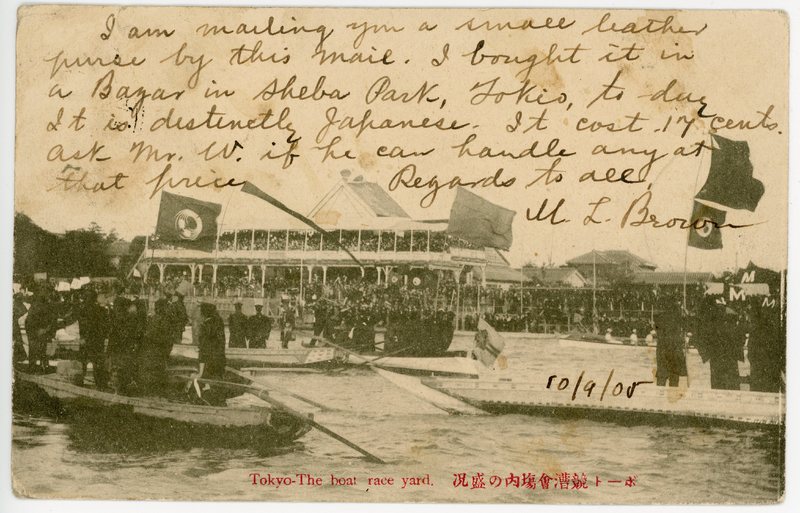 I am mailing you a small leather
purse by this mail. I bought it in
a Bazar in Sheba Park, Tokio, to-day
It is distinctly Japanese. It cost .17 cents.
ask Mr. W. if he can handle any at
that price Regards to all,
M. L. Brown
10/9/05
Tokyo-The boat race yard.
ボート競漕會塲内の盛况